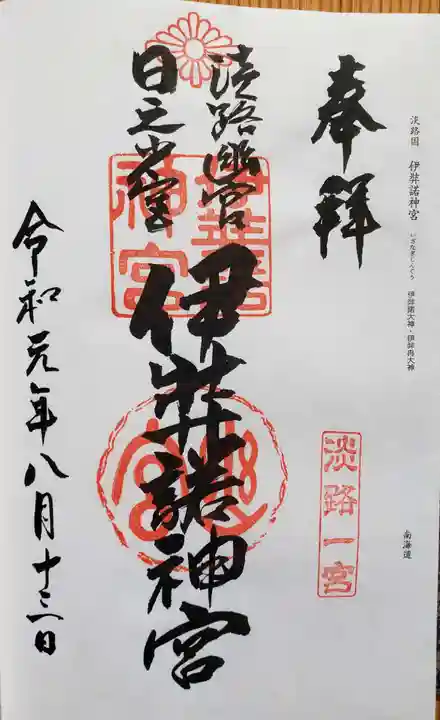 淡路国 伊弉諾神宮 いざなぎじんぐう 伊弉諾大神・伊弉冉大神
南海道
奉拝
淡路一宮
淡路幽宮
日之少宮
伊弉諾神宮
令和元年八月十三日